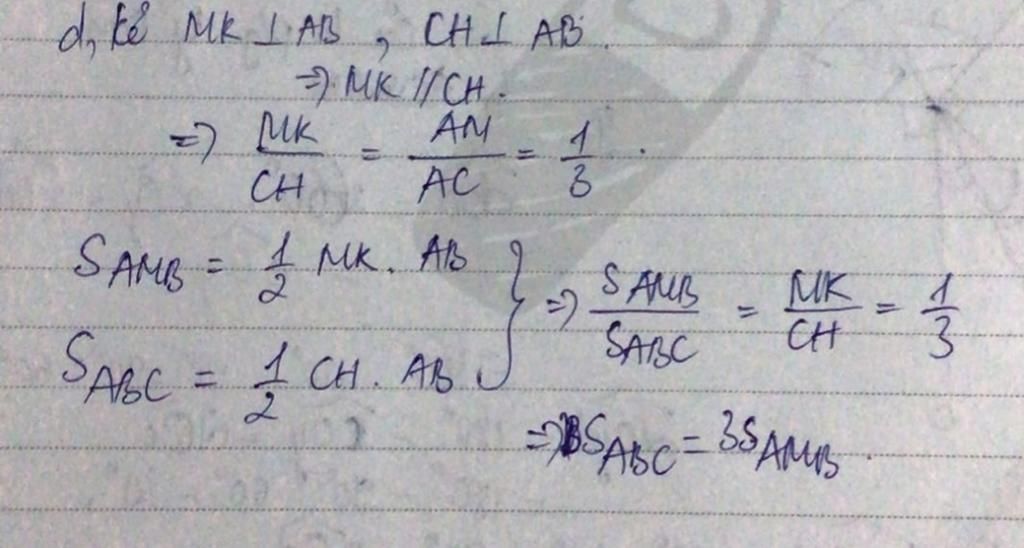 d, kẻ MK ⊥ AB, CH ⊥ AB.
=> MK // CH.
=> MK/CH = AM/AC = 1/3.
S_AMB = 1/2 MK. AB
S_ABC = 1/2 CH. AB } => S_AMB/S_ABC = MK/CH = 1/3
=> S_ABC = 3S_AMB.